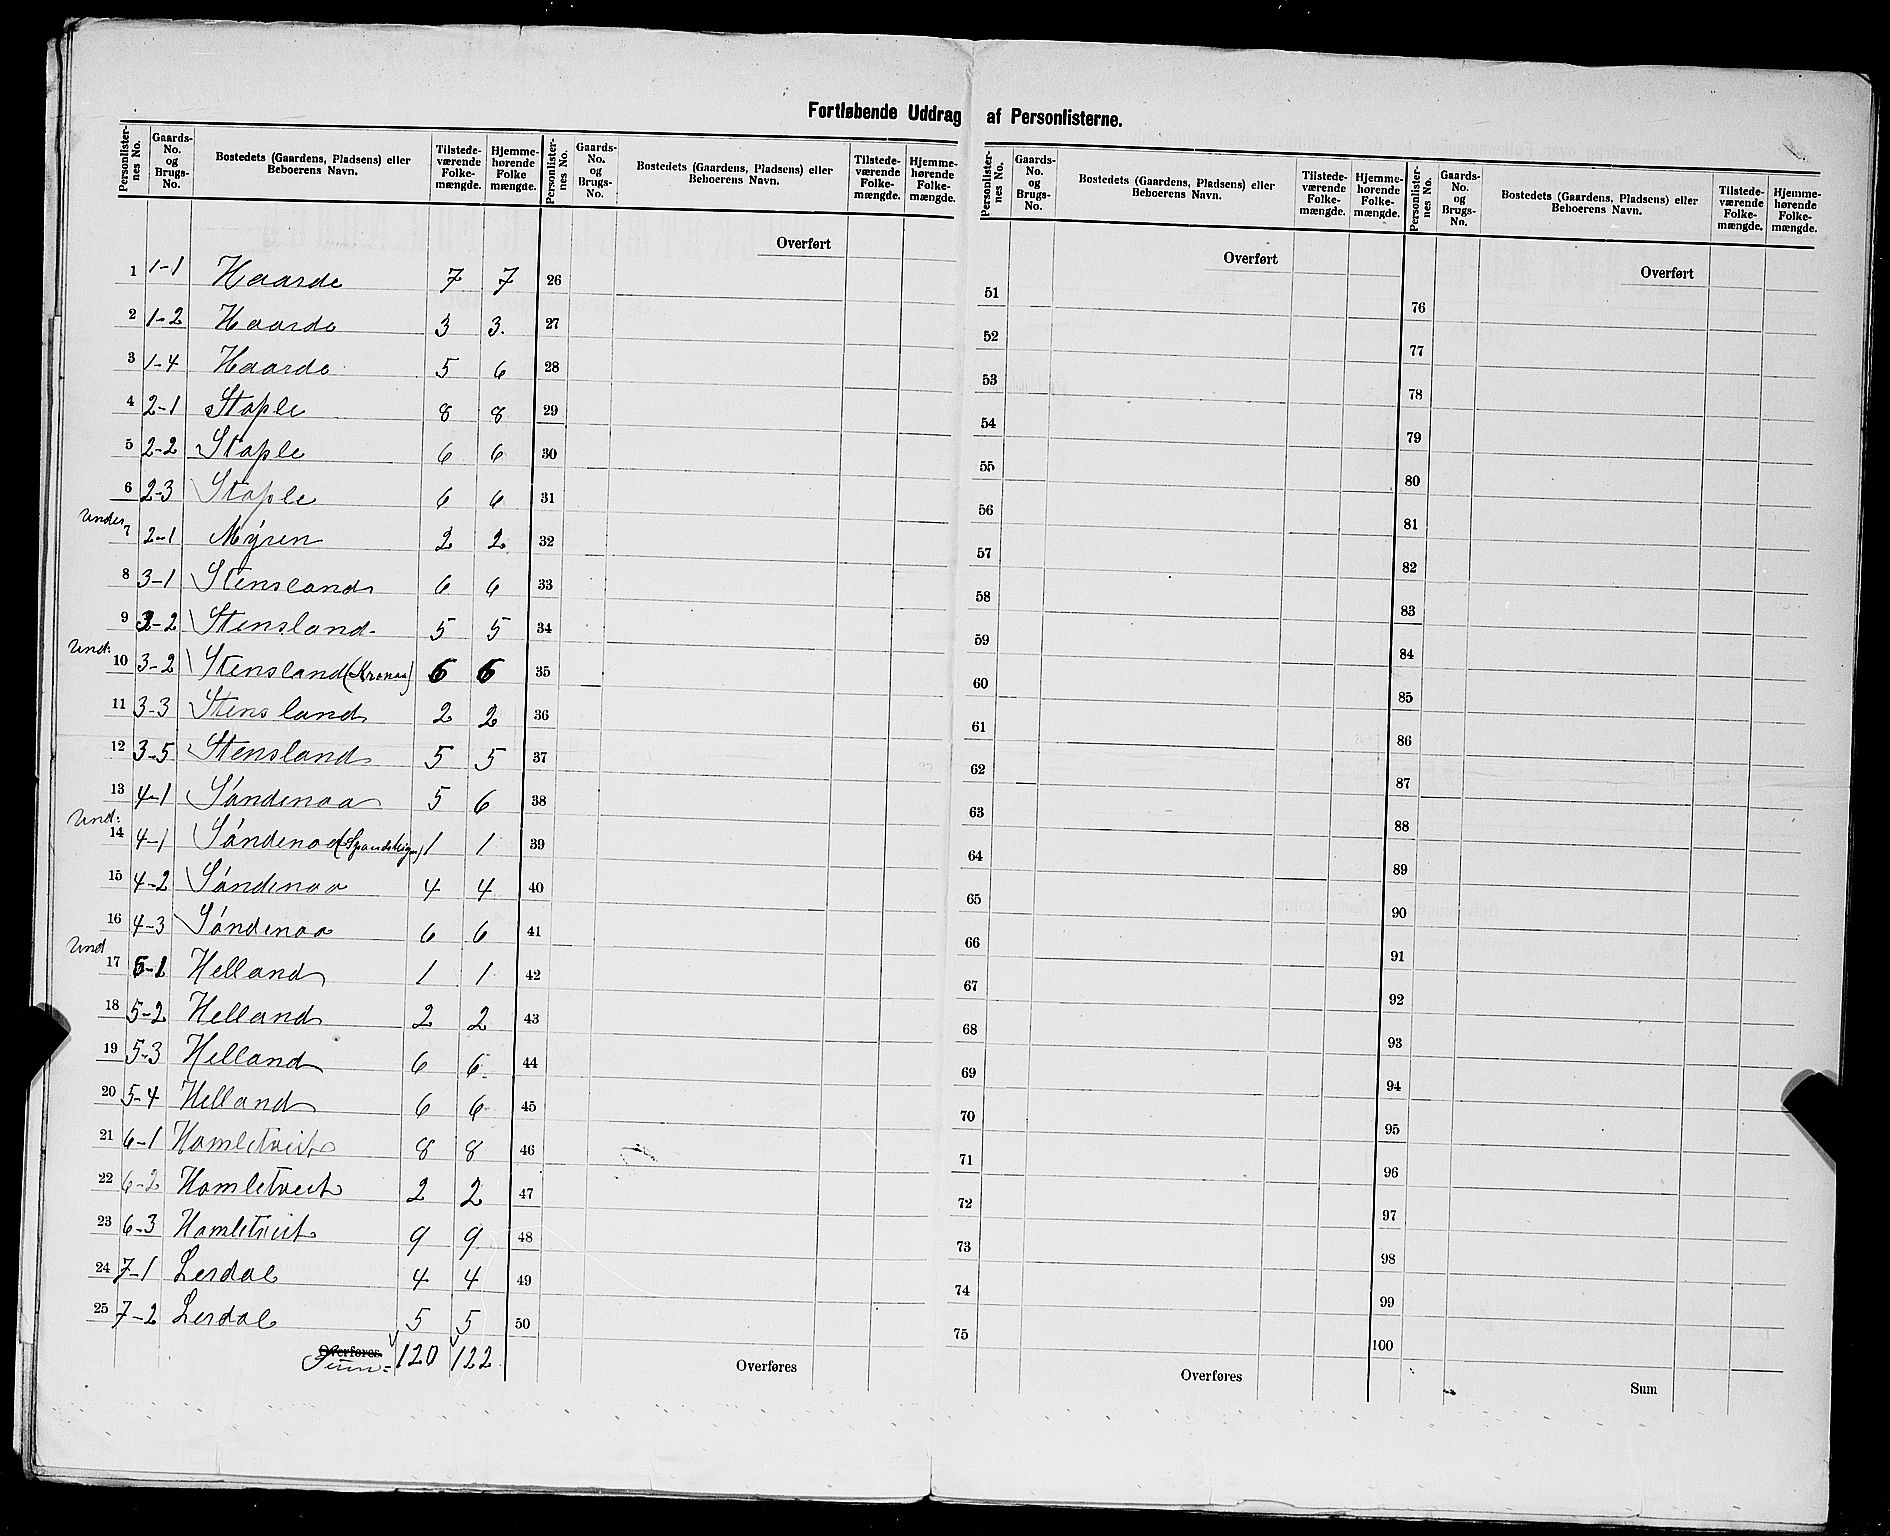 Fortløbende Uddrag af Personlisterne.
Personlister-nes No. | Gaards-No. og Brugs-No. | Bostedets (Gaardens, Pladsens) eller Beboerens Navn. | Tilstede-værende Folke-mængde. | Hjemme-hørende Folke mængde.
1 1-1 Haarde 7 7
2 1-2 Haarde 3 3.
3 1-4 Haarde 5 6
4 2-1 Staple 8 8
5 2-2 Staple 6 6
6 2-3 Staple 6 6
Under 7 2-1 Myren 2 2
8 3-1 Stensland 6 6
9 3-2 Stensland 5 5
Und: 10 3-2 Stensland (Kronaa) 6 6
11 3-3 Stensland 2 2
12 3-5 Stensland 5 5
13 4-1 Söndenaa 5 6
Und: 14 4-1 Söndenaa 1 1
15 4-2 Söndenaa 4 4
16 4-3 Söndenaa 6 6
Und 17 5-1 Helland 1 1
18 5-2 Helland 2 2
19 5-3 Helland 6 6
20 5-4 Helland 6 6
21 6-1 Hamletveit 8 8
22 6-2 Hamletveit 2 2
23 6-3 Hamletveit 9 9
24 7-1 Lerdal 4 4
25 7-2 Lerdal 5 5
Overføres.
Sum = 120 122
Personlister-nes No. | Gaards-No. og Brugs-No. | Bostedets (Gaardens, Pladsens) eller Beboerens Navn. | Tilstede-værende Folke-mængde. | Hjemme-hørende Folke-mængde.
Overført
26
27
28
29
30
31
32
33
34
35
36
37
38
39
40
41
42
43
44
45
46
47
48
49
50
Overføres
Personlister-nes No. | Gaards-No. og Brugs-No. | Bostedets (Gaardens, Pladsens) eller Beboerens Navn. | Tilstede-værende Folke-mængde. | Hjemme-hørende Folke-mængde.
Overført
51
52
53
54
55
56
57
58
59
60
61
62
63
64
65
66
67
68
69
70
71
72
73
74
75
Overføres
Personlister-nes No. | Gaards-No. og Brugs-No. | Bostedets (Gaardens, Pladsens) eller Beboerens Navn. | Tilstede-værende Folke-mængde. | Hjemme-hørende Folke-mængde.
Overført
76
77
78
79
80
81
82
83
84
85
86
87
88
89
90
91
92
93
94
95
96
97
98
99
100
Sum